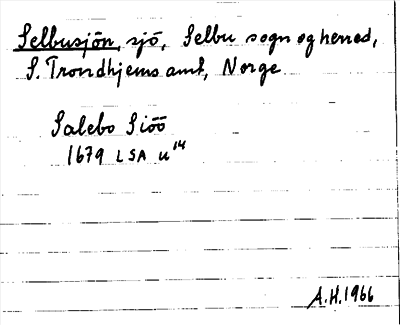 Selbusjön, sjö, Selbu sogn og herred,
S. Trondhjems amt, Norge
Salebo Siöö
1679 LSA u14
A.H. 1966